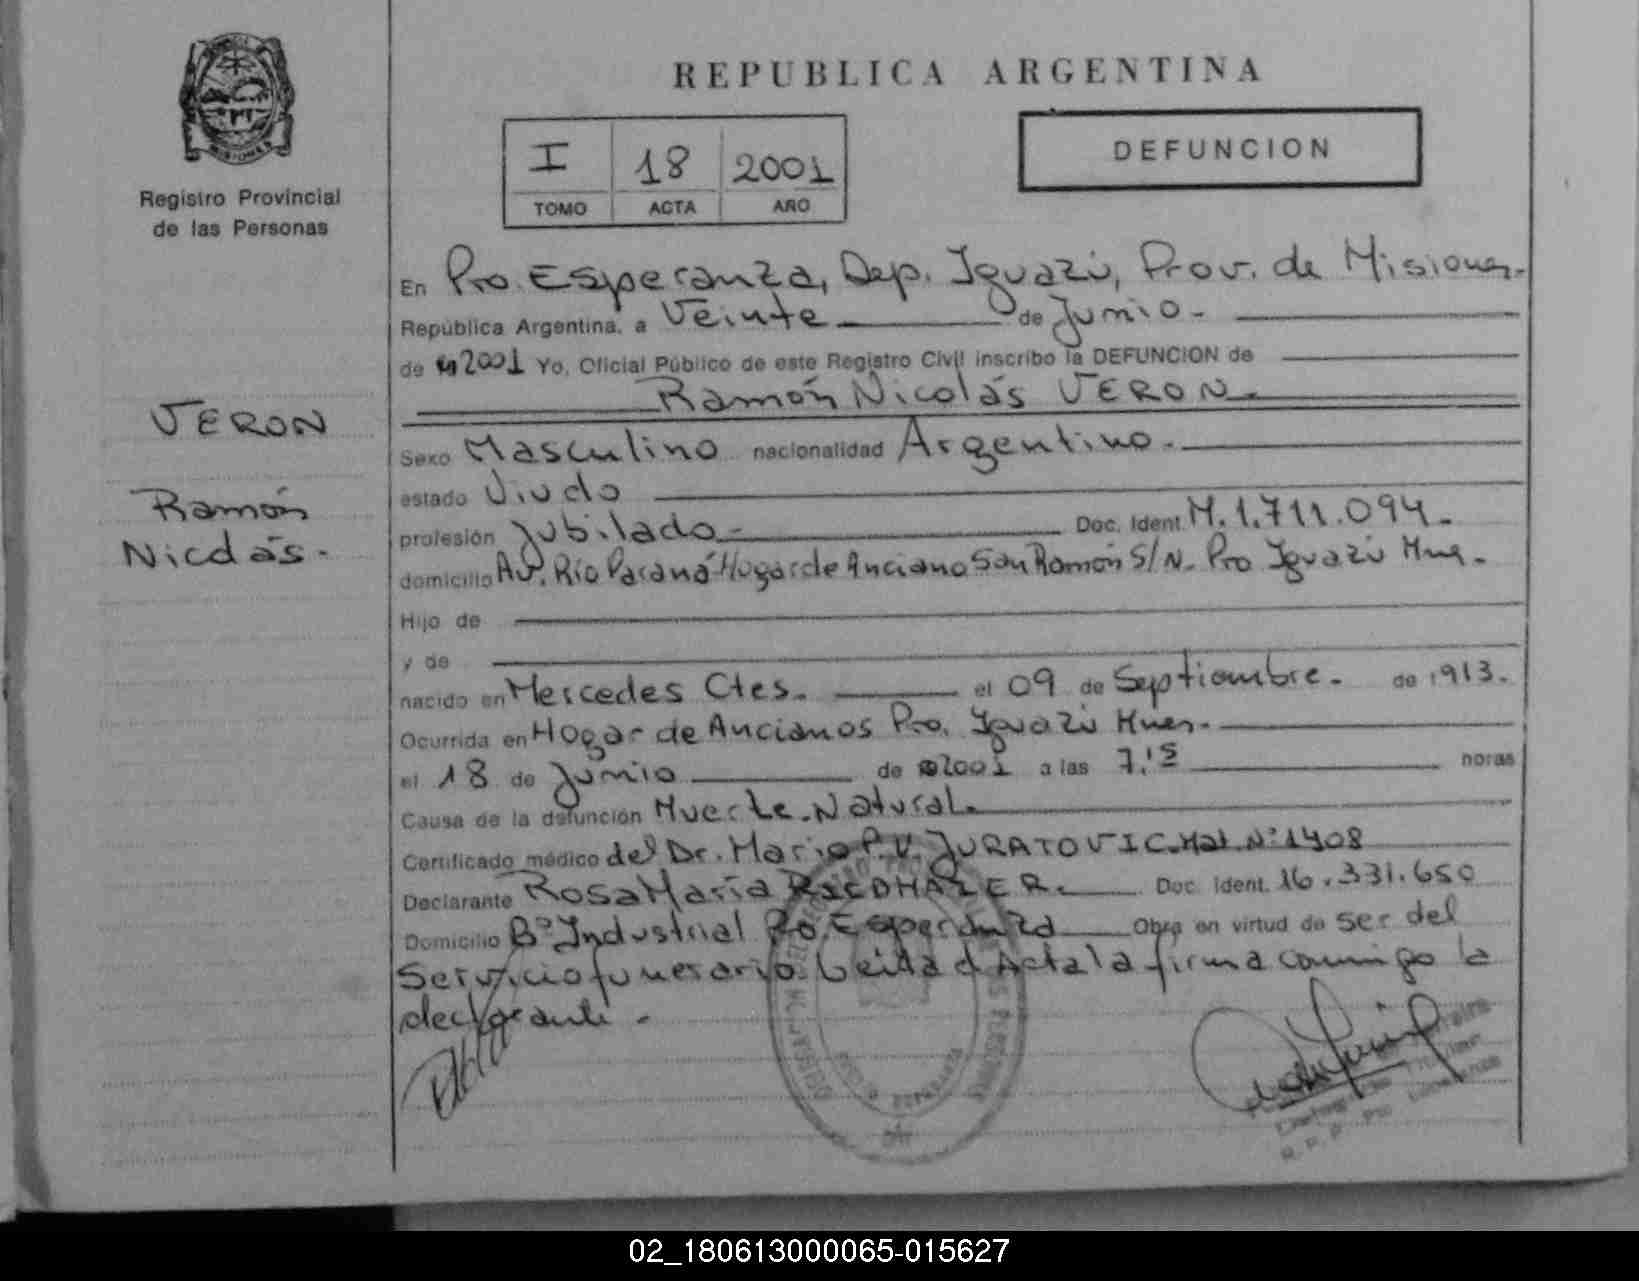 MISIONES
Registro Provincial
de las Personas
VERON
Ramón
Nicolás.
REPUBLICA ARGENTINA
I 18 2001
TOMO ACTA AÑO
DEFUNCION
En Pto. Esperanza, Dep. Iguazú, Prov. de Misiones.
República Argentina, a Veinte de Junio.
de 2001 Yo, Oficial Público de este Registro Civil inscribo la DEFUNCION de
Ramón Nicolás VERON.
Sexo Masculino nacionalidad Argentino.
estado Viudo
profesión Jubilado. Doc. Ident. M. 1.711.094.
domicilio Av. Río Paraná Hogar de Anciano San Ramón S/N. Pto Iguazú Mnes.
Hijo de
y de
nacido en Mercedes Ctes. el 09 de Septiembre. de 1913.
Ocurrida en Hogar de Ancianos Pto. Iguazú Mnes.
el 18 de Junio de 2001 a las 7,15 horas
Causa de la defunción Muerte Natural.
Certificado médico del Dr. Mario P.V. JURATOVIC. Mat. Nº 1408
Declarante Rosa María Doc. Ident. 16.331.650
Domicilio Bº Industrial Pto. Esperanza Obra en virtud de ser del
Servicio funerario. Leida el Acta la firma conmigo la
declarante.
02_180613000065-015627